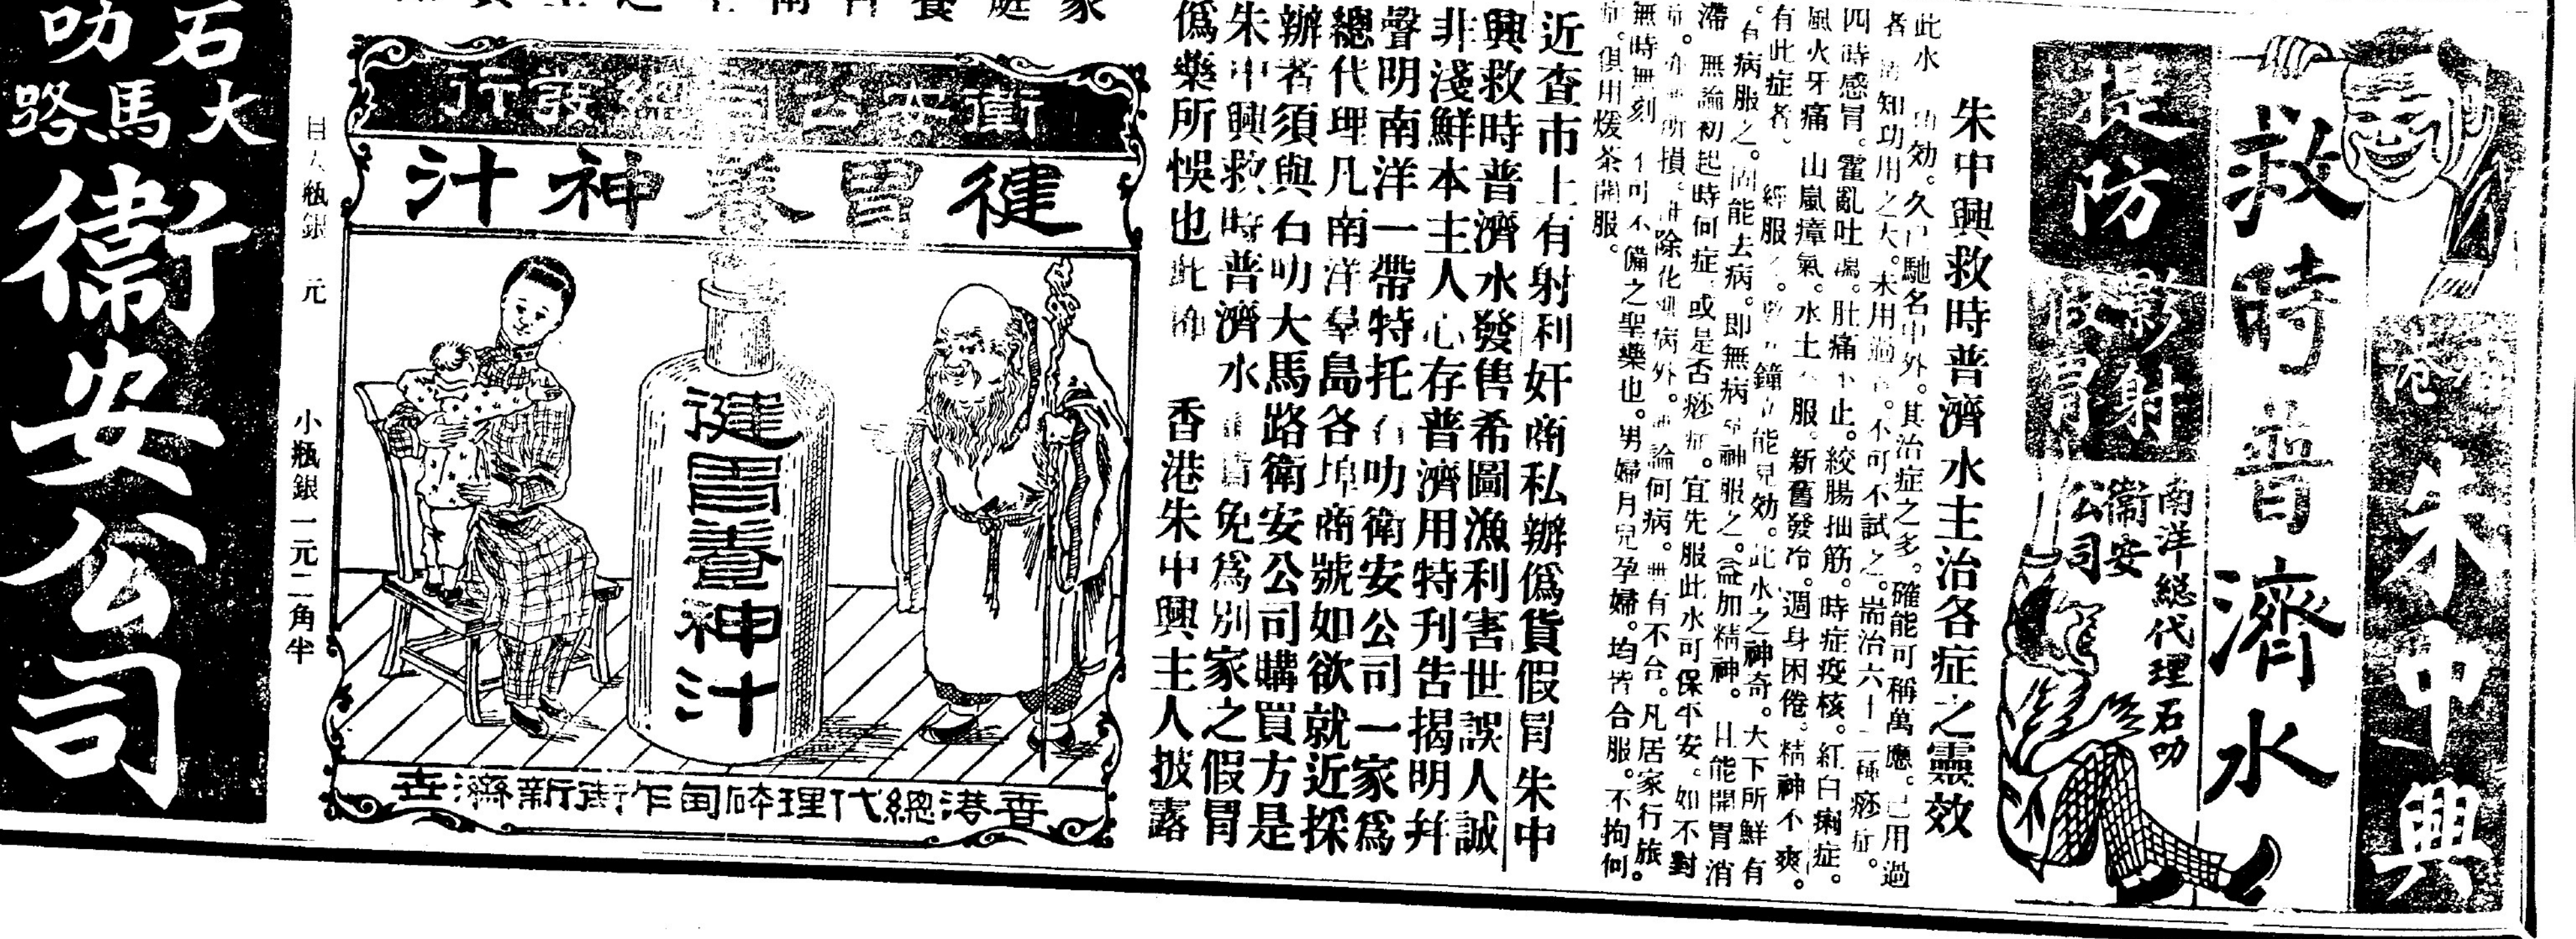 香港
朱中興
救時普濟水
南洋總代理石叻
衛安
公司
提防
影射
假冒
朱中興救時普濟水主治各症之靈效
效。久已馳名中外。其治症之多。確能可稱萬應。已用過
者 知功用之大。未用過 。不可不試之。耑治六十二種痧症。
四時感冒。霍亂吐瀉。肚痛不止。絞腸抽筋。時症疫核。紅白痢症。
風火牙痛 山嵐瘴氣。水土 服。新舊發冷。週身困倦。精神不爽。
有此症者、 經服 。 鐘 能見効。此水之神奇。大下所鮮有
。有病服之。固能去病。即無病 神服之。益加精神。且能開胃消
滯 無論初起時何症 或是否痧症。宜先服此水可保平安。如不對
症。亦 所損。 除化 病外。 論何病。無有不合。凡居家行旅。
無時無刻 不可不備之聖藥也。男婦月兒孕婦。均皆合服。不拘何
症。俱用煖茶開服。
近查市上有射利奸商私辦僞貨假冒朱中
興救時普濟水發售希圖漁利害世誤人誠
非淺鮮本主人心存普濟用特刊告揭明并
聲明南洋一帶特托石叻衛安公司一家爲
總代理凡南洋羣島各埠商號如欲就近採
辦者須與石叻大馬路衛安公司購買方是
朱中興救時普濟水 免爲別家之假冒
僞藥所悞也此佈 香港朱中興主人披露
衛安公司總發行
健胃養神汁
健胃養神汁
香港總代理砵甸乍街新濟世
大瓶銀 元 小瓶銀一元二角半
石叻
大馬路
衛安公司